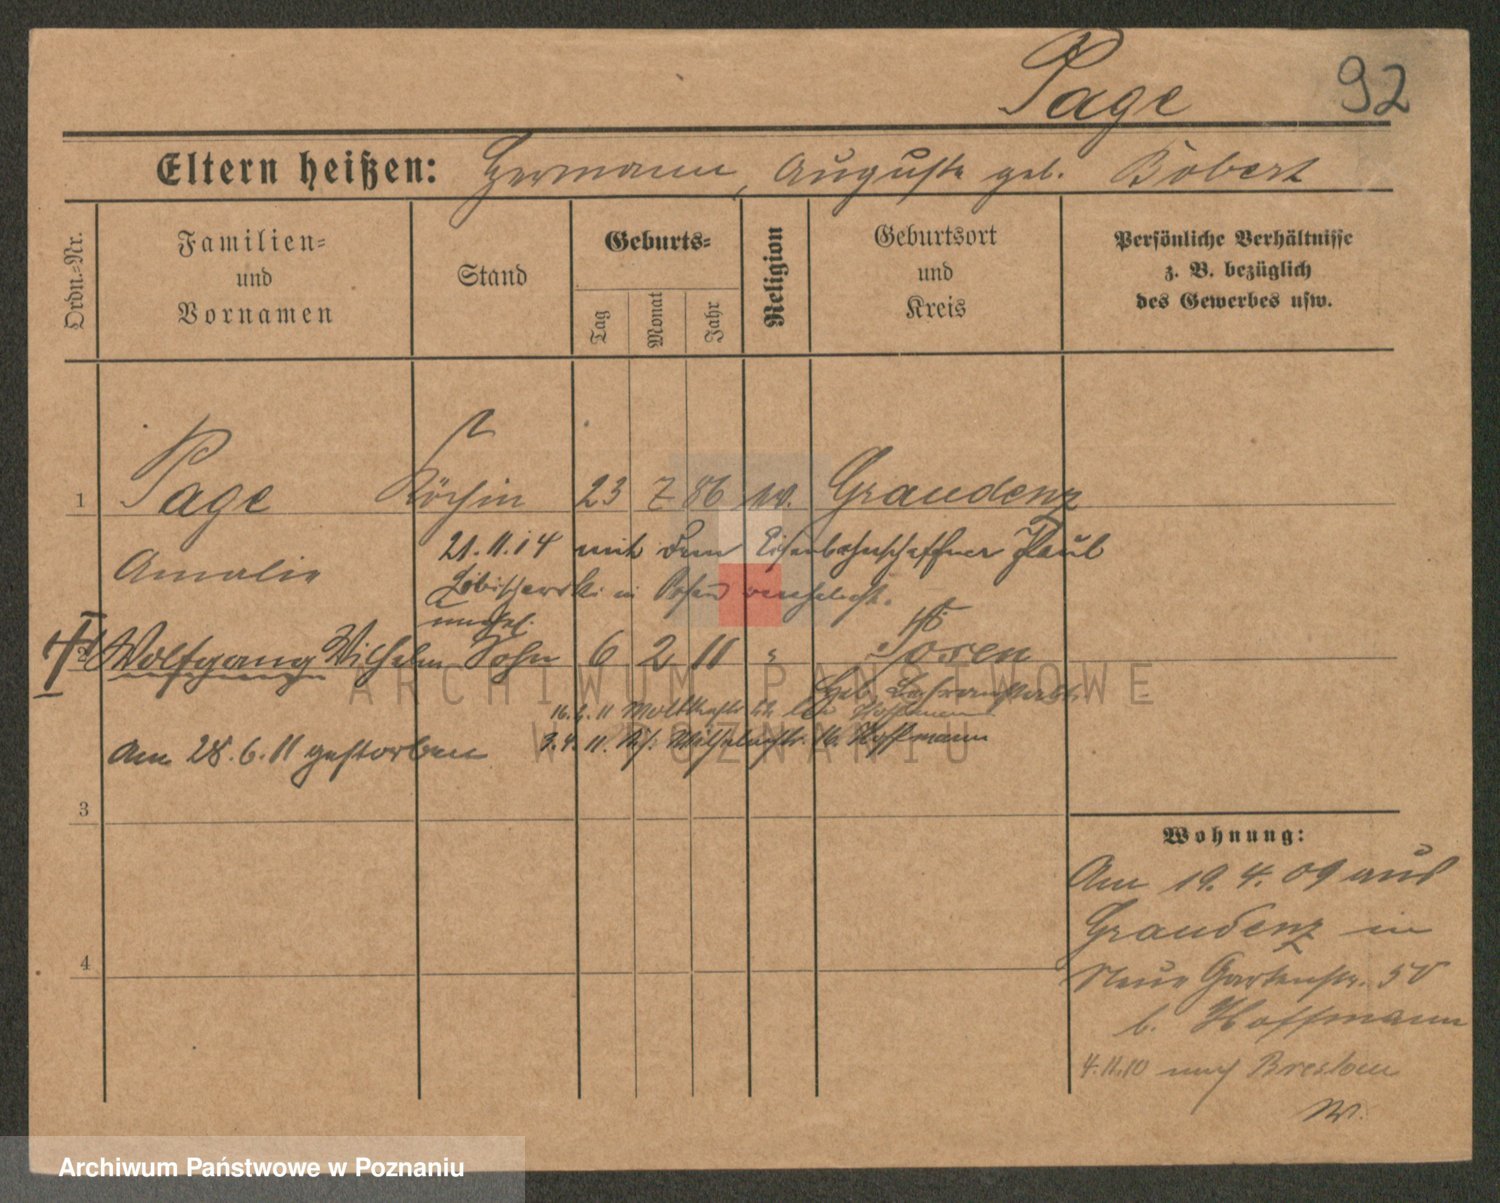 Page 92
Eltern heißen: Hermann, Auguste geb. Bobert
Ordn.-Nr.
Familien-
und
Vornamen
Stand
Geburts-
Tag
Monat
Jahr
Religion
Geburtsort
und
Kreis
Persönliche Verhältnisse
z. B. bezüglich
des Gewerbes usw.
1 Page Köchin 23 7 86 ev. Graudenz
21.11.14 mit dem Eisenbahnschaffner Paul
Amalie
in Posen verehelicht.
unehel.
2 Wolfgang Wilhelm Sohn 6 2 11 " Posen
Heb. Lehranstalt
16.2.11 Moltkestr. bei Hoffmann
3.4.11 Hoffmann
Am 28.6.11 gestorben
3
4
Wohnung:
Am 19.4.09 aus
Graudenz in
Neue Gartenstr. 50
b. Hoffmann
4.11.10 nach Breslau
ARCHIWUM PAŃSTWOWE
W POZNANIU
Archiwum Państwowe w Poznaniu